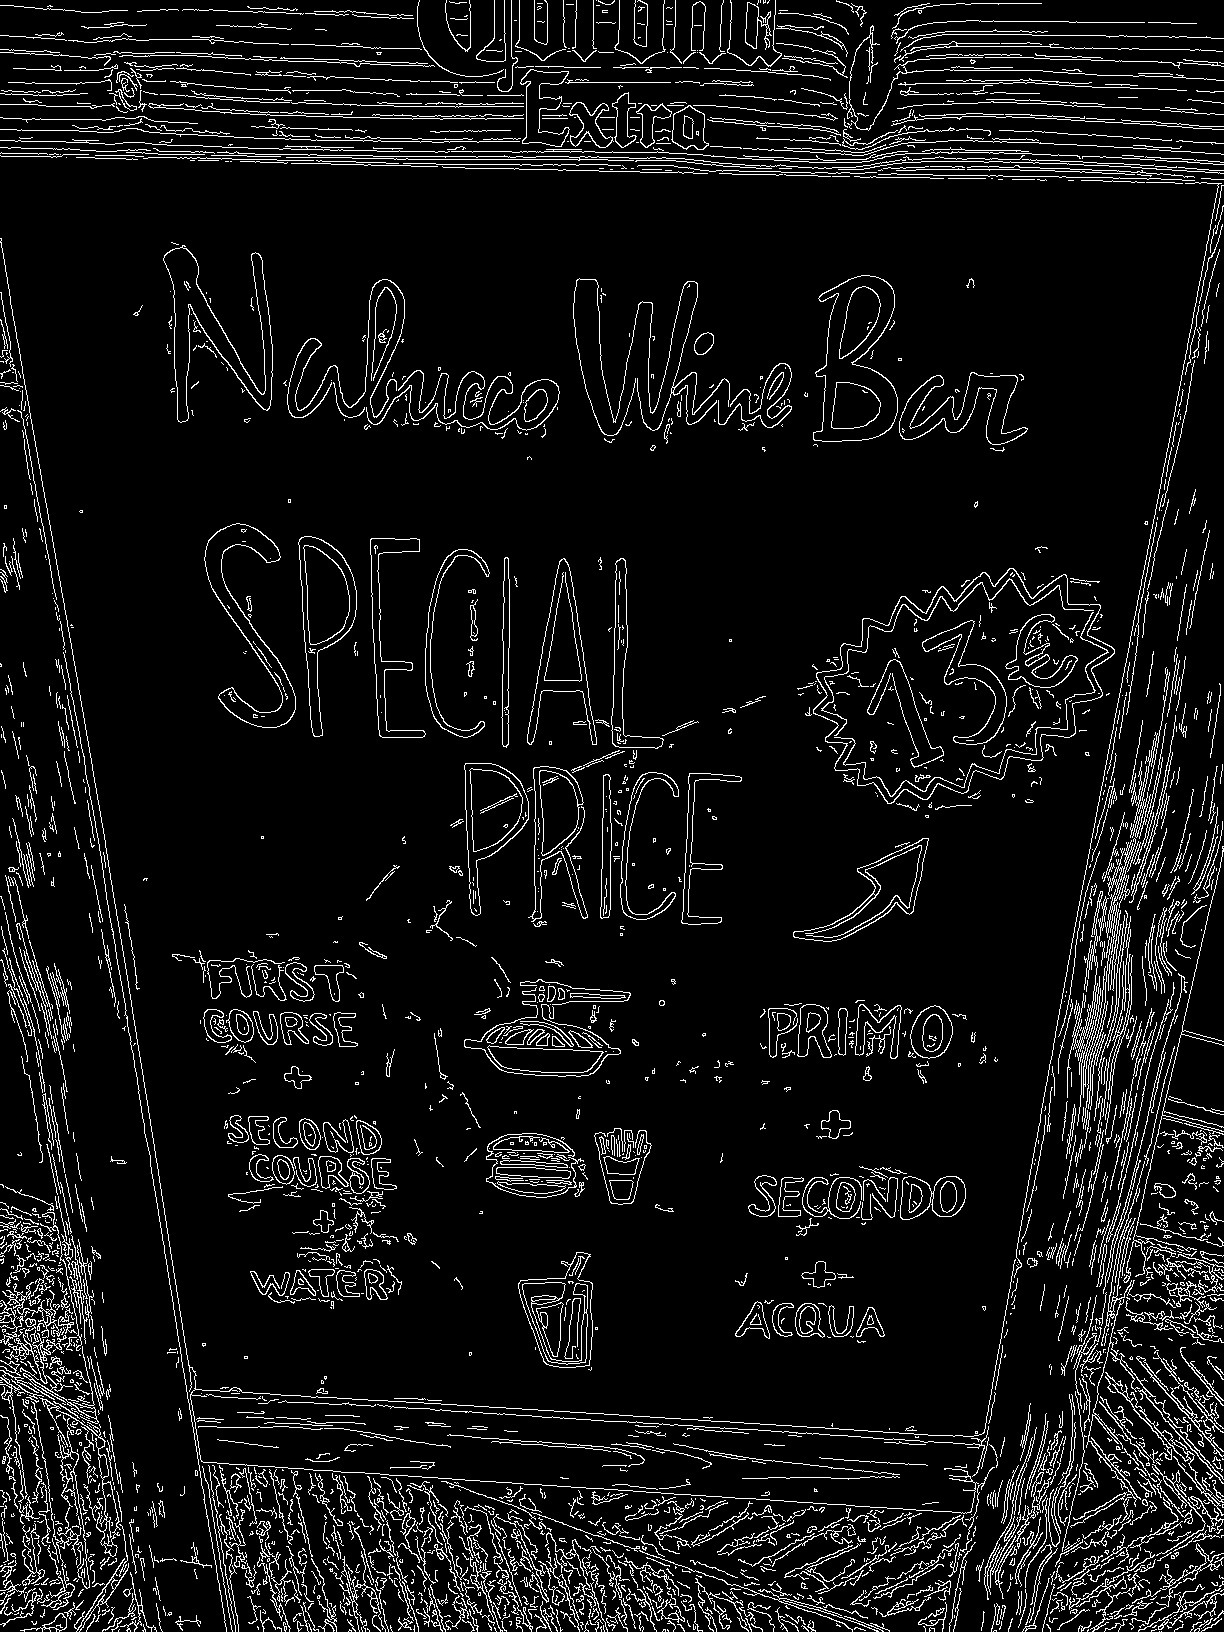 Corona
Extra
Nabucco Wine Bar
SPECIAL
PRICE
13€
FIRST
COURSE
+
SECOND
COURSE
+
WATER
PRIMO
+
SECONDO
+
ACQUA